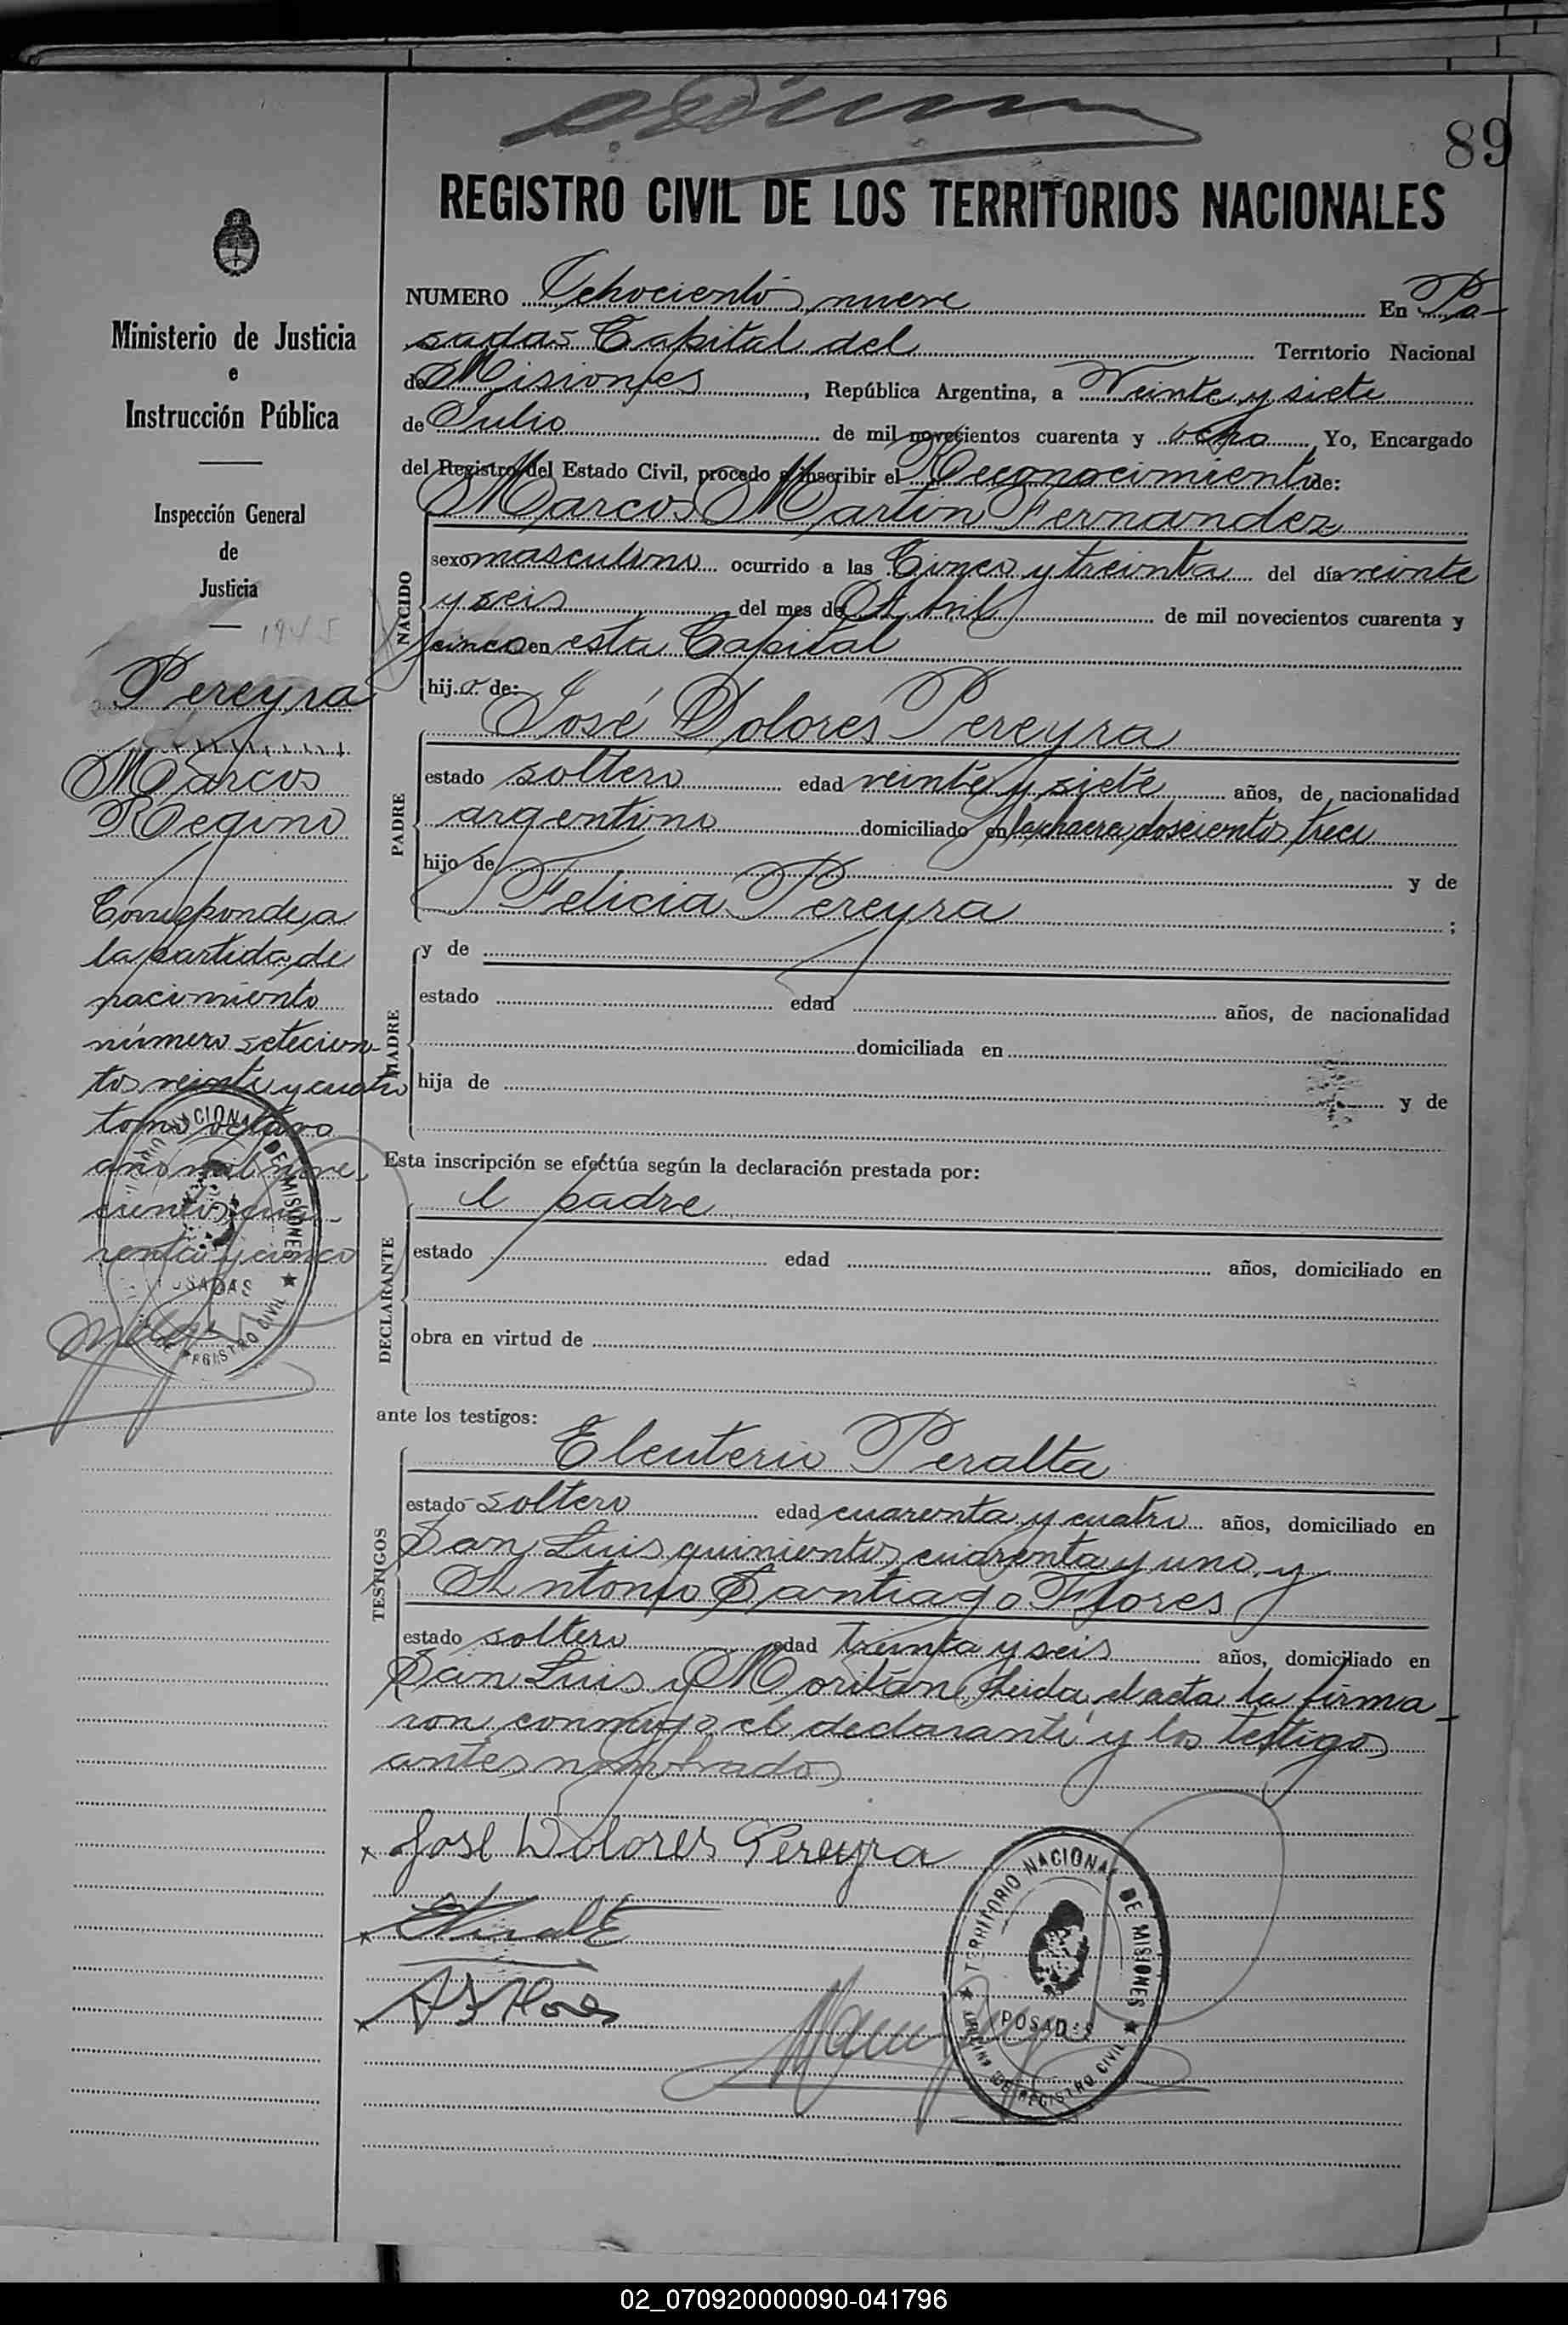 89
REGISTRO CIVIL DE LOS TERRITORIOS NACIONALES
NUMERO Ochocientos nueve En Po-
sadas Capital del Territorio Nacional
de Misiones, República Argentina, a Veinte y siete
de Julio de mil novecientos cuarenta y ocho Yo, Encargado
del Registro del Estado Civil, procedo a inscribir el Reconocimiento de:
NACIDO
Marcos Martin Fernandez
sexo masculino ocurrido a las Cinco y treinta del día veinte
y seis del mes de Abril de mil novecientos cuarenta y
cinco en esta Capital
hijo de:
PADRE
José Dolores Pereyra
estado soltero edad veinte y siete años, de nacionalidad
argentino domiciliado en la chacra doscientos trece
hijo de y de
Felicia Pereyra ;
MADRE
y de
estado edad años, de nacionalidad
domiciliada en
hija de y de
Esta inscripción se efectúa según la declaración prestada por:
DECLARANTE
el padre
estado edad años, domiciliado en
obra en virtud de
ante los testigos:
TESTIGOS
Eleuterio Peralta
estado soltero edad cuarenta y cuatro años, domiciliado en
San Luis quinientos cuarenta y uno y
Antonio Santiago Flores
estado soltero edad treinta y seis años, domiciliado en
San Luis y Leida el acta la firma-
ron conmigo el declarante y los testigos
antes nombrados
x José Dolores Pereyra
x
x A S Flores
TERRITORIO NACIONAL DE MISIONES
POSADAS
OFICINA DE REGISTRO CIVIL
Ministerio de Justicia
e
Instrucción Pública
Inspección General
de
Justicia
1945
Pereyra
Marcos
Regino
Corresponde a
la partida de
nacimiento
número setecien-
tos veinte y cuatro
tomo octavo
año mil nove-
cientos cua-
renta y cinco
NACIONAL DE MISIONES
POSADAS
DE REGISTRO CIVIL
02_070920000090-041796